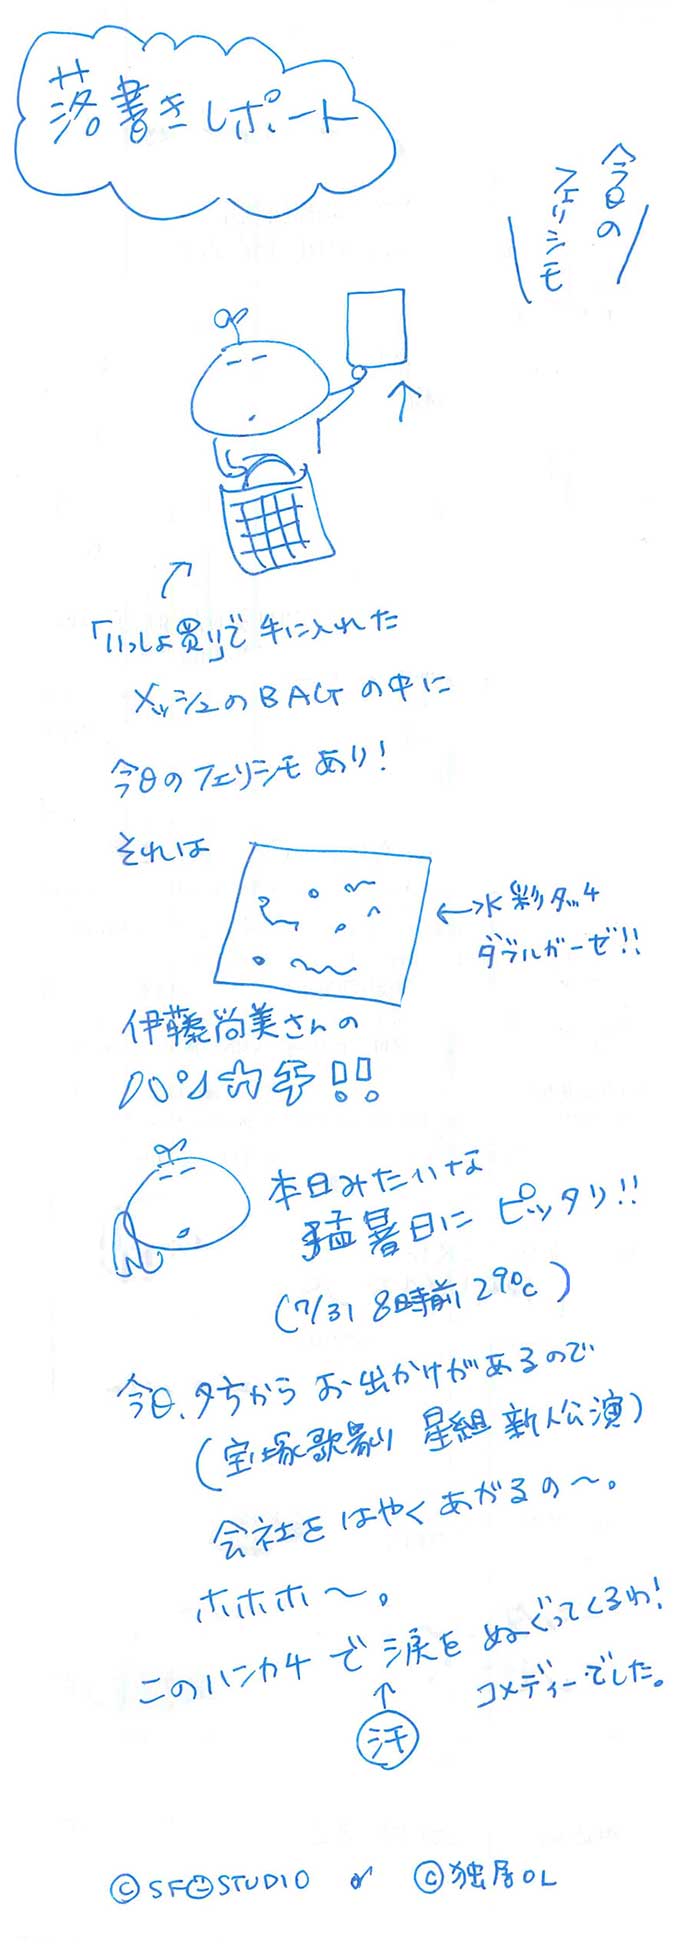 落書きレポート
今日の
フェリシモ
「いっしょ買い」で手に入れた
メッシュのBAGの中に
今日のフェリシモあり!
それは
水彩タッチ
ダブルガーゼ!!
伊藤尚美さんの
ハンカチ!!
本日みたいな
猛暑日にピッタリ!!
(7/31 8時前 29℃)
今日、夕方からお出かけがあるので
(宝塚歌劇 星組 新人公演)
会社をはやくあがるの〜。
ホホホ〜。
このハンカチで涙をぬぐってくるわ!
コメディーでした。
汗
©SF STUDIO or ©独居OL